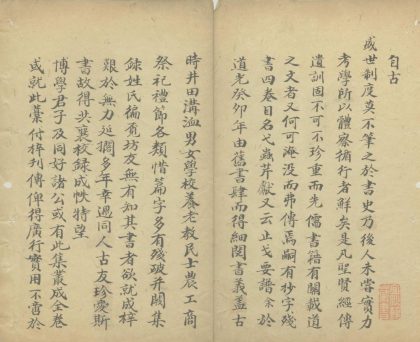 自古
盛世制度莫不筆之於書史乃後人未嘗實力
考學所以體察備行者鮮矣是凡聖賢經傳
遺訓固不可不珍重而先儒書籍有關載道
之文者又何可淹沒而弗傳焉嗣有抄字殘
書四卷目名戈歲芹獻又云止戈要譜余於
道光癸卯年由舊書肆而得細閱書義盖古
時井田溝洫男女學校養老教民士農工商
祭祀禮節各類惜篇字多有殘破并闕集
錄姓氏徧覓坊友無有知其書者欲就成梓
艱於無力延擱多年幸遇同人古友珍愛斯
書故得共襄校錄成帙特望
博學君子及同好諸公或有此集叢成全卷
或就此藁付梓刋傳俾得廣行實用不啻於